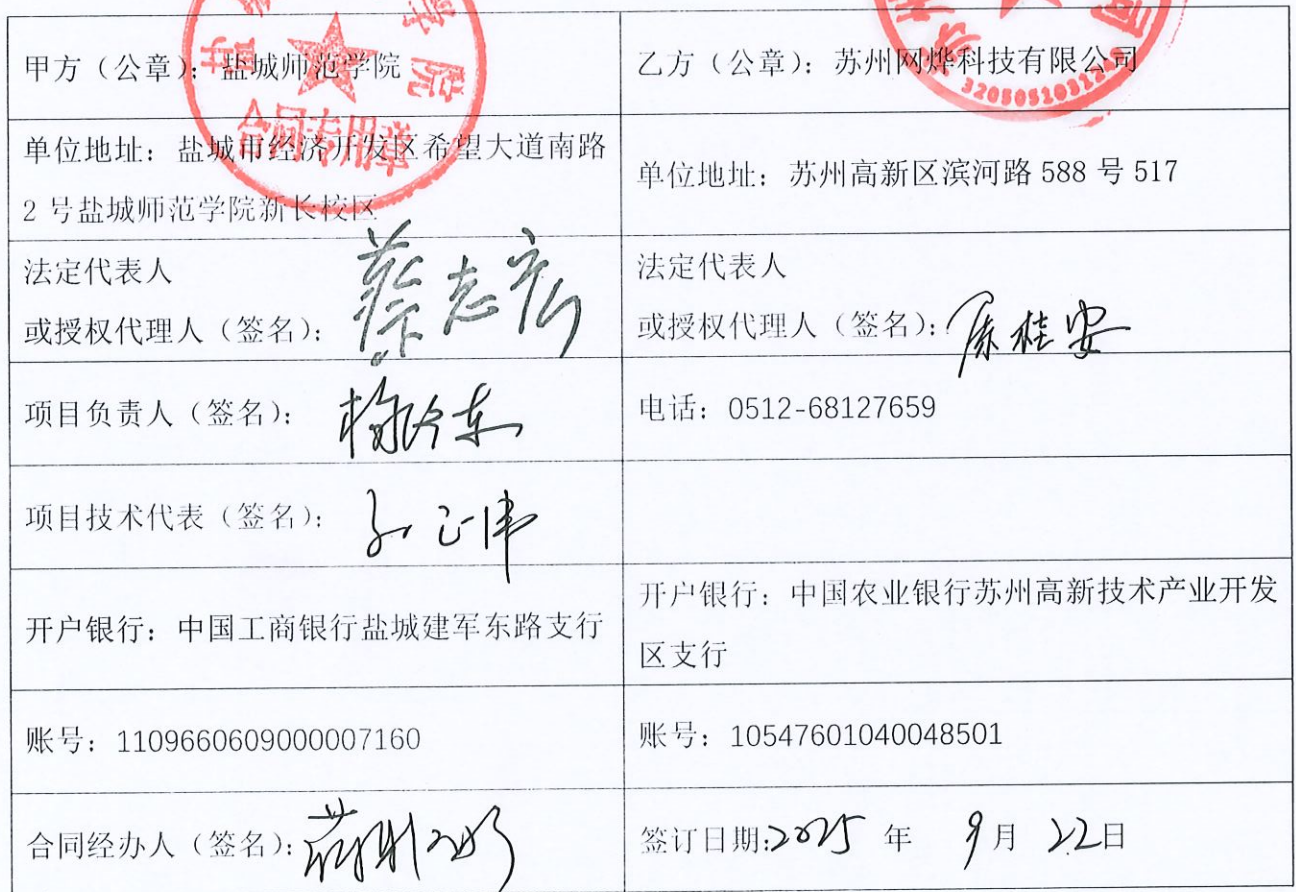 甲方（公章）：盐城师范学院
乙方（公章）：苏州网烨科技有限公司
合同专用章
单位地址：盐城市经济开发区希望大道南路
2 号盐城师范学院新长校区
单位地址：苏州高新区滨河路 588 号 517
法定代表人
或授权代理人（签名）：蔡志宏
法定代表人
或授权代理人（签名）：桂安
项目负责人（签名）：
电话：0512-68127659
项目技术代表（签名）：正伟
开户银行：中国工商银行盐城建军东路支行
开户银行：中国农业银行苏州高新技术产业开发
区支行
账号：1109660609000007160
账号：10547601040048501
合同经办人（签名）：
签订日期:2025 年 9月 22日